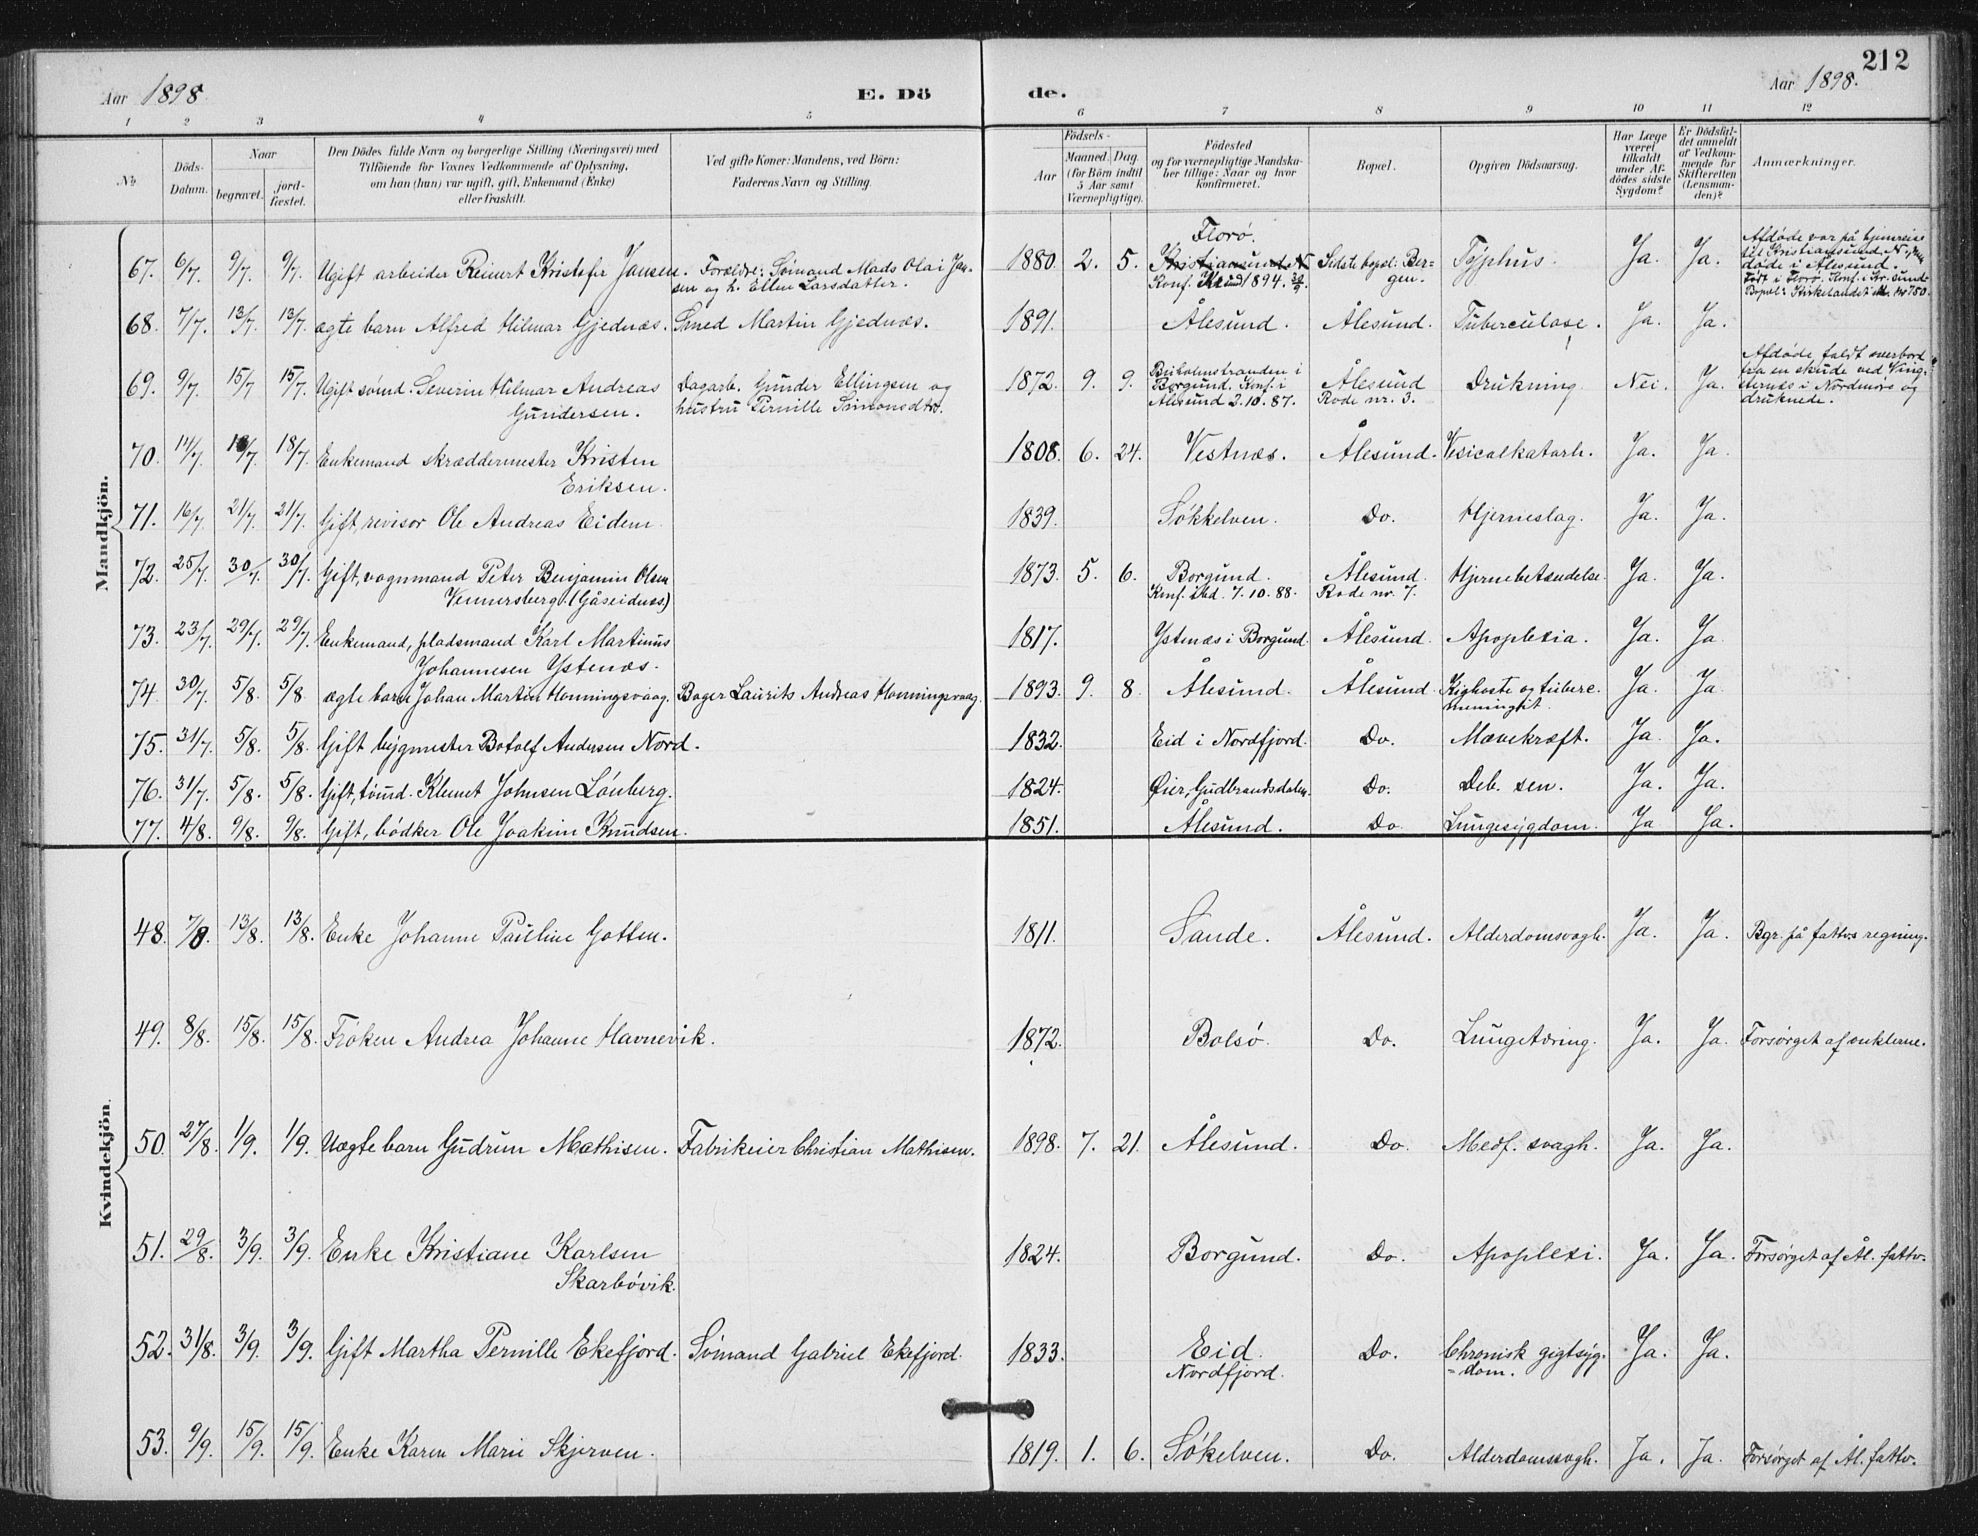 212
Aar 1898.
E. Dö
de.
Aar 1898.
1 2 3 4 5 6 7 8 9 10 11 12
No
Döds-Datum.
Naar
begravet.
jord-fæstet.
Den Dödes fulde Navn og borgerlige Stilling (Næringsvei) med
Tilföiende for Voxnes Vedkommende af Oplysning,
om han (hun) var ugift, gift, Enkemand (Enke)
eller fraskilt.
Ved gifte Koner: Mandens, ved Börn:
Faderens Navn og Stilling.
Födsels-
Aar
Maaned. Dag.
(for Börn indtil
5 Aar samt
Værnepligtige).
Födested
og for værnepligtige Mandska-
ber tillige: Naar og hvor
konfirmeret.
Bopæl.
Opgiven Dödsaarsag.
Har Læge
været
tilkaldt
under Af-
dödes sidste
Sygdom?
Er Dödsfal-
det anmeldt
af Vedkom-
mende for
Skifteretten
(Lensman-
den)?
Anmærkninger.
Mandkjön.
67. 6/7. 9/7. 9/7. Ugift arbeider Reinert Kristofer Jansen. Forældre: Sömand Mads Olai Jan-
sen og h. Ellen Larsdatter. 1880. 2. 5. Florø.
Kristiansund N
Konf. Kr.sund 1894. Sidste bopæl: Ber-
gen. Typhus. Ja. Ja. Afdøde var på hjemreise
til Kristiansund N,
døde i Ålesund.
Født i Florø. Konf. i Kr.sund
Bopæl: Kirkelandet nr 750.
68. 7/7. 13/7. 13/7. ægte barn Alfred Hilmar Gjednæs. Smed Martin Gjednæs. 1891. Ålesund. Ålesund. Tuberculose. Ja. Ja.
69. 9/7. 15/7 15/7. Ugift sömd. Severin Hilmar Andreas
Gundersen. Dagarb. Gunder Ellingsen og
hustru Pernille Simonsdtr. 1872. 9. 9. Buholmstranden i
Borgund. Konf. i
Ålesund 2.10.87. Ålesund
Rode nr. 3. Drukning. Nei. Ja. Afdøde faldt overbord
fra en skude ved Ving-
sternes i Nordmøre og
druknede.
70. 14/7. 18/7. 18/7. Enkemand skræddermester Kristen
Eriksen. 1808. 6. 24. Vestnæs. Ålesund. Vesicalkatarh. Ja. Ja.
71. 16/7. 21/7. 21/7. Gift, revisor Ole Andreas Eidem. 1839. Søkkelven. Do. Hjerneslag. Ja. Ja.
72. 25/7. 30/7. 30/7. Gift, vognmand Peter Benjamin Olsen
Vennersberg. (Gåseidnes) 1873. 5. 6. Borgund.
Konf. ibd. 7.10.88. Ålesund.
Rode nr. 7. Hjernebetændelse. Ja. Ja.
73. 23/7. 29/7. 29/7. Enkemand, pladsmand Karl Martinus
Johannesen Ystenæs. 1817. Ystenæs i Borgund. Ålesund. Apoplexia. Ja. Ja
74. 30/7. 5/8. 5/8. ægte barn Johan Martin Honningsvaag. Bager Laurits Andreas Honningsvaag. 1893. 9. 8. Ålesund. Ålesund. Kighoste og tuberc.
meningit. Ja. Ja.
75. 31/7. 5/8. 5/8. Gift bygmester Botolf Andersen Nord. 1832. Eid i Nordfjord. Do. Mavekræft. Ja. Ja.
76. 31/7. 5/8. 5/8. Gift, tömd. Klemet Johnsen Lönberg. 1824. Øier, Gudbrandsdalen. Do. Deb. sen. Ja. Ja.
77. 4/8. 9/8. 9/8. Gift, bødker Ole Joakim Knudsen. 1851. Ålesund. Do. Lungesygdom. Ja Ja.
Kvindekjön.
48. 7/8. 13/8. 13/8. Enke Johanne Pauline Gotten. 1811. Sande. Ålesund. Alderdomsvagh. Ja. Ja. Bgr. på fattvs regning.
49. 8/8. 15/8. 15/8. Frøken Andrea Johanne Havnevik. 1872. Bolsø. Do. Lungetæring. Ja. Ja. Forsørget af onklerne.
50. 27/8. 1/9. 1/9. Uægte barn Gudrun Mathisen. Fabrikeier Christian Mathisen. 1898. 7. 21. Ålesund. Do. Medf. svagh. Ja. Ja.
51. 29/8. 3/9. 3/9. Enke Kristiane Karlsen
Skarbövik. 1824. Borgund. Do. Apoplexi. Ja. Ja. Forsørget af Ål. fattv.
52. 31/8. 3/9. 3/9. Gift Martha Pernille Ekefjord. Sömand Gabriel Ekefjord. 1833. Eid.
Nordfjord. Do. Chronisk gigtsyg-
=dom. Ja. Ja.
53. 9/9. 15/9. 15/9. Enke Karen Marie Skjerven. 1819. 1. 6. Søkelven. Do. Alderdomssvagh. Ja. Ja. Forsørget af Ål. fattv.